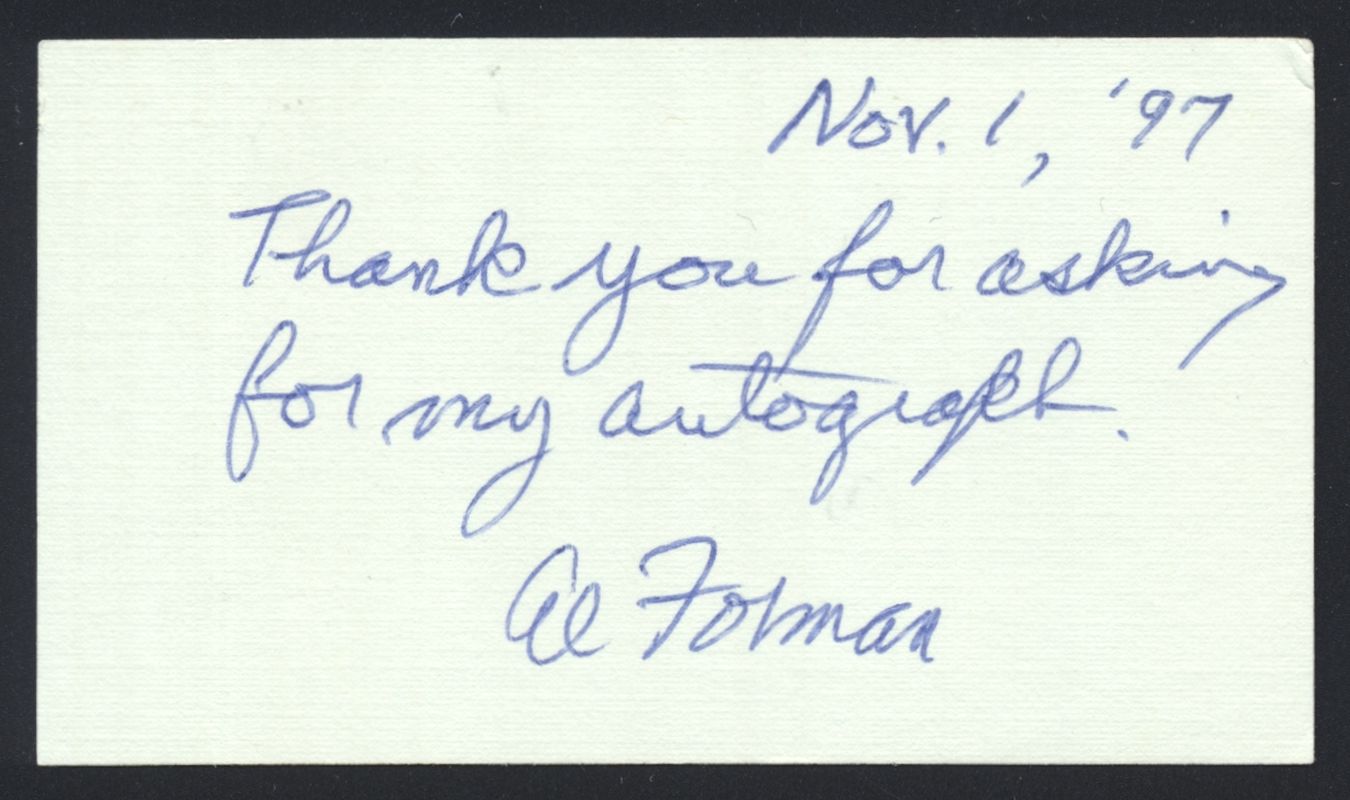 Nov. 1, '97
Thank you for asking
for my autograph.
Al Forman